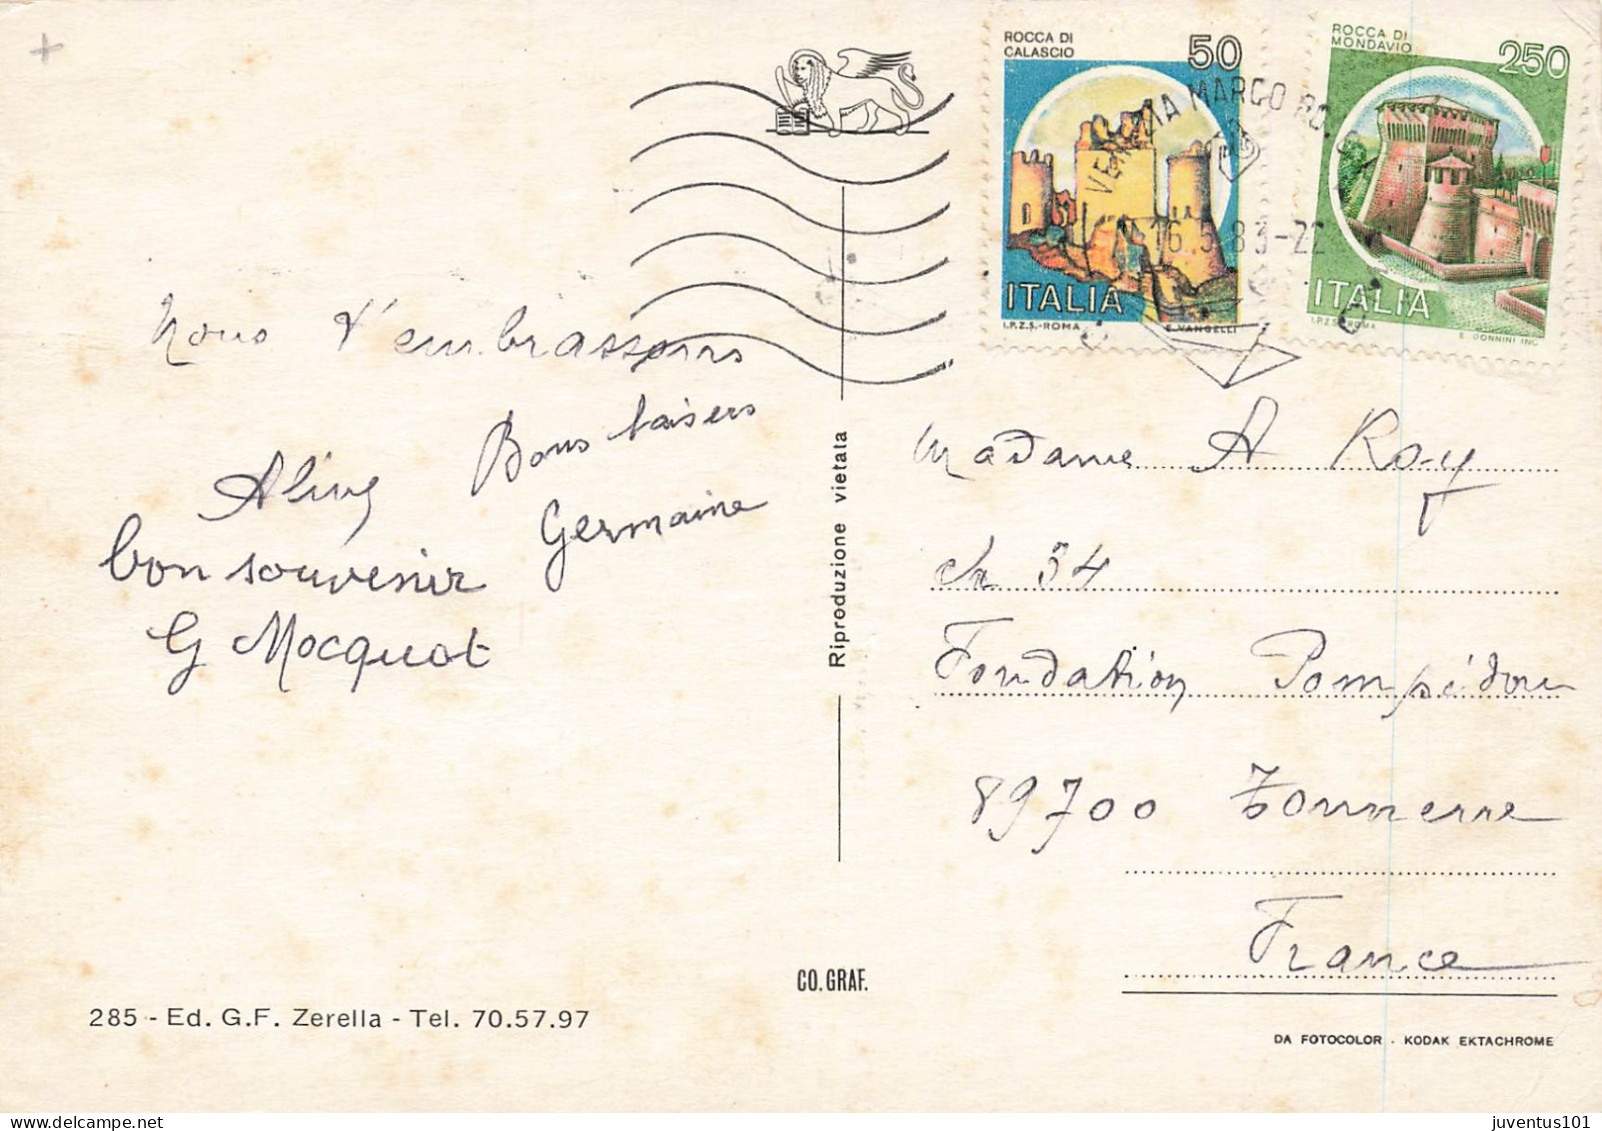 ROCCA DI
CALASCIO
50
ITALIA
I.P.Z.S.-ROMA
E. VANGELLI
ROCCA DI
MONDAVIO
250
ITALIA
I.P.Z.S.-ROMA
E. DONNINI INC.
VENEZIA MARCO
16.5 83-22
nous t'embrassons
Aline
Bons baisers
Germaine
bon souvenir
G Mocquot
Riproduzione vietata
Madame A Roy
ch 34
Fondation Pompidou
89700 Tonnerre
France
CO. GRAF.
285 - Ed. G.F. Zerella - Tel. 70.57.97
DA FOTOCOLOR - KODAK EKTACHROME
juventus101